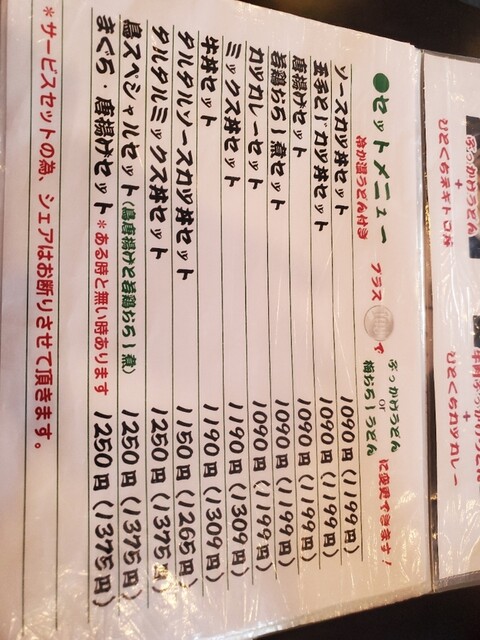 ●セットメニュー
冷か温うどん付き
プラス
で
ぶっかけうどん
or
梅おろしうどん
に変更できます!
ソースカツ丼セット 1090円(1199円)
玉子とじカツ丼セット 1090円(1199円)
唐揚げセット 1090円(1199円)
若鶏おろし煮セット 1090円(1199円)
カツカレーセット 1090円(1199円)
ミックス丼セット 1190円(1309円)
牛丼セット 1190円(1309円)
タルタルソースカツ丼セット 1150円(1265円)
タルタルミックス丼セット 1250円(1375円)
鳥スペシャルセット(鳥唐揚げと若鶏おろし煮) 1250円(1375円)
まぐろ・唐揚げセット＊ある時と無い時あります 1250円(1375円)
＊サービスセットの為、シェアはお断りさせて頂きます。
ぶっかけうどん
+
ひとくちネギトロ丼
牛肉ぶっかけうどん
+
ひとくちカツカレー